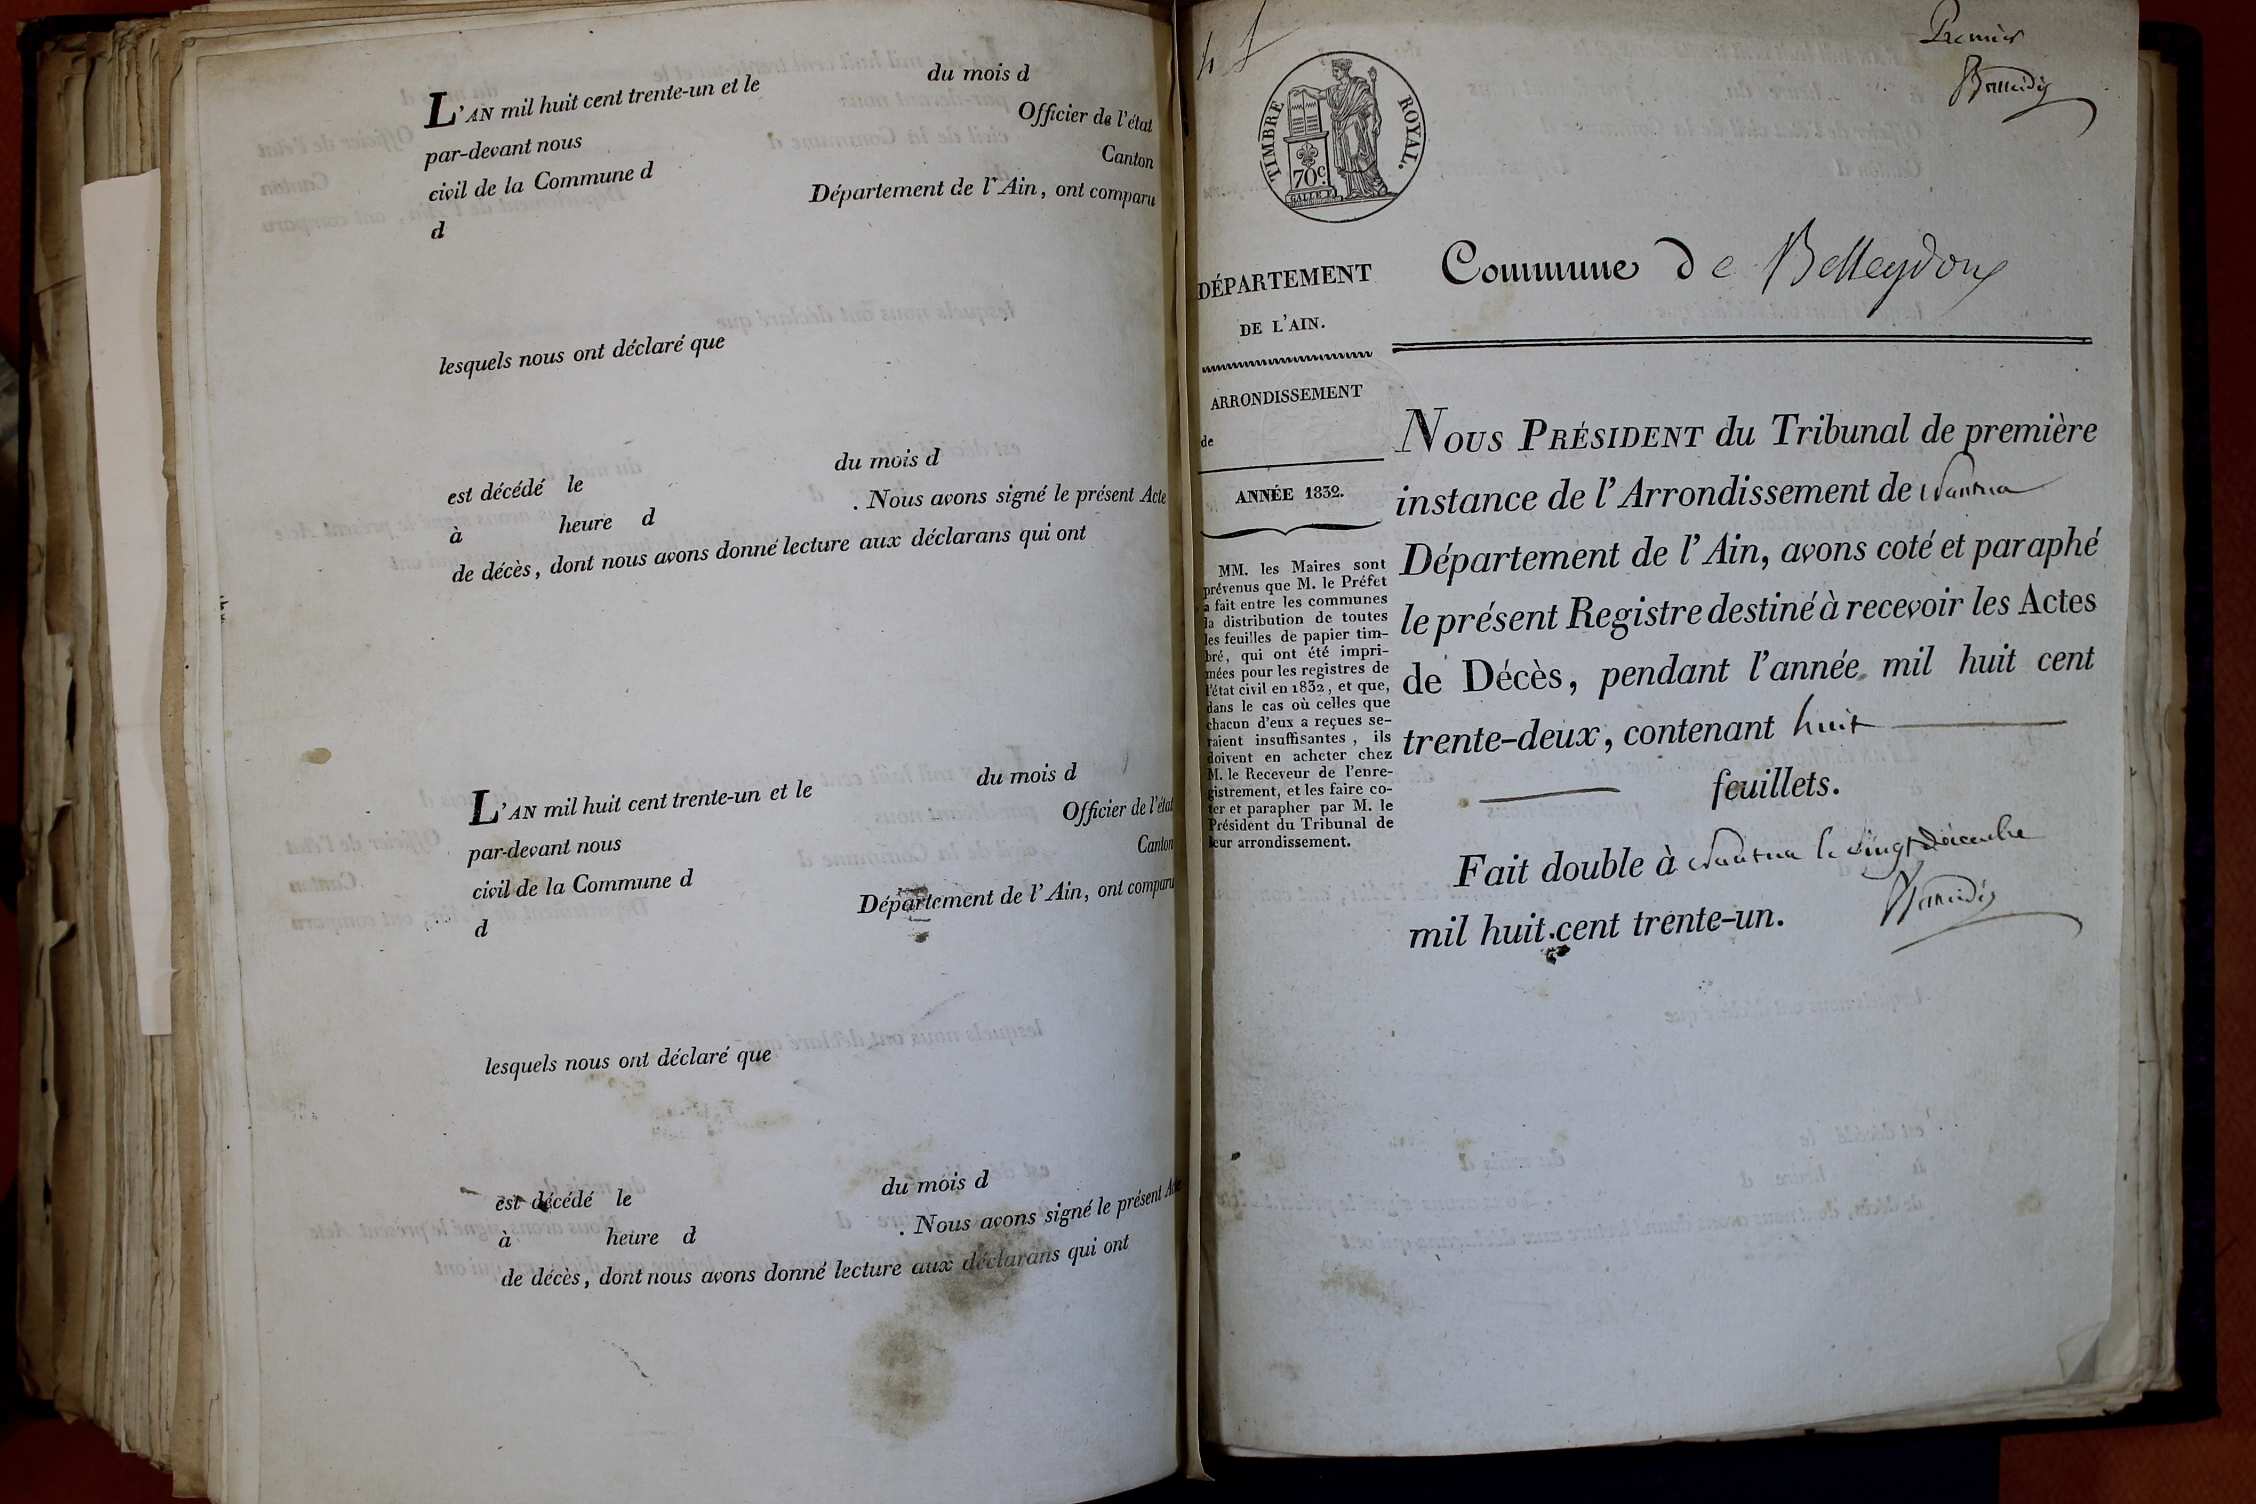 L'AN mil huit cent trente-un et le du mois d
par-devant nous Officier de l'état
civil de la Commune d Canton
d Département de l'Ain, ont comparu
lesquels nous ont déclaré que
est décédé le du mois d
à heure d . Nous avons signé le présent Acte
de décès, dont nous avons donné lecture aux déclarans qui ont
L'AN mil huit cent trente-un et le du mois d
par-devant nous Officier de l'état
civil de la Commune d Canton
d Département de l'Ain, ont comparu
lesquels nous ont déclaré que
est décédé le du mois d
à heure d . Nous avons signé le présent Acte
de décès, dont nous avons donné lecture aux déclarans qui ont
Premier
TIMBRE ROYAL.
70 c.
GALLE F.
DÉPARTEMENT
DE L'AIN.
ARRONDISSEMENT
de
ANNÉE 1832.
MM. les Maires sont
prévenus que M. le Préfet
a fait entre les communes
la distribution de toutes
les feuilles de papier tim-
bré, qui ont été impri-
mées pour les registres de
l'état civil en 1832, et que,
dans le cas où celles que
chacun d'eux a reçues se-
raient insuffisantes, ils
doivent en acheter chez
M. le Receveur de l'enre-
gistrement, et les faire co-
ter et parapher par M. le
Président du Tribunal de
leur arrondissement.
Commune de Belleydoux
NOUS PRÉSIDENT du Tribunal de première
instance de l'Arrondissement de Nantua
Département de l'Ain, avons coté et paraphé
le présent Registre destiné à recevoir les Actes
de Décès, pendant l'année mil huit cent
trente-deux, contenant huit
feuillets.
Fait double à Nantua le vingt décembre
mil huit cent trente-un.